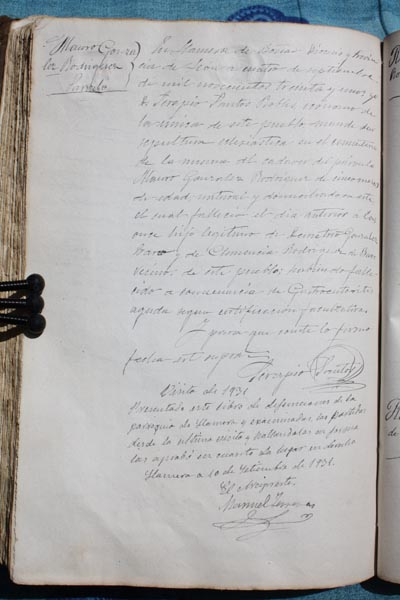 Mauro Gonza
lez Rodriguez
Parvulo
En Llamera de Boñar Diocesis y provin
cia de León a cuatro de septiembre
de mil novecientos treinta y uno, yo
D. Serapio Santos Robles ecónomo de
la única de este pueblo, mande dar
sepultura eclesiástica en el cementerio
de la misma al cadaver del párvulo
Mauro Gonzalez Rodriguez de cinco meses
de edad, natural y domiciliado en esta,
el cual falleció el dia anterior a las
once hijo legitimo de Demetrio Gonzalez
y de Clemencia Rodriguez de
vecinos de este pueblo; habiendo falle
cido a consecuencia de Gastroenteritis
aguda segun certificación facultativa.
Y para que conste lo firmo
fecha ut supra
Serapio Santos
Visita de 1931
Presentado este libro de defunciones de la
parroquia de Llamera y examinadas las partidas
desde la ultima visita y hallandolas en forma
las aprobó en cuanto ha lugar en derecho
Llamera a 10 de Setiembre de 1931.
El Arcipreste
Manuel